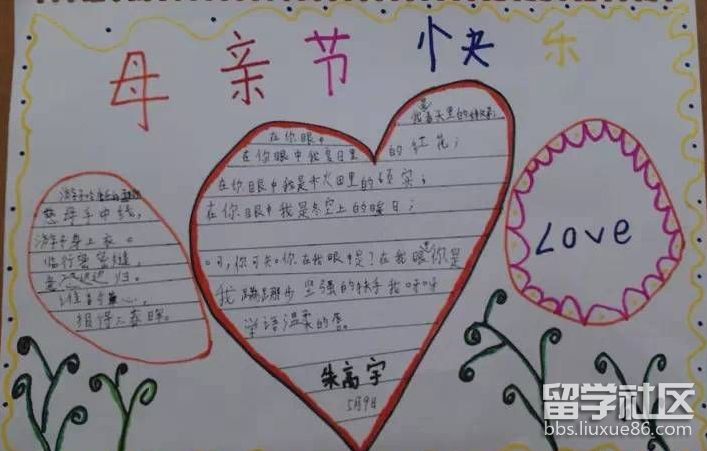 母亲节快乐
慈母手中线，
游子身上衣。
临行密密缝，
意恐迟迟归。
谁言寸草心，
报得三春晖。
在你眼中
我是春天里的
在你眼中我是夏日里的红花；
在你眼中我是 田里的硕实；
在你眼中我是冬空上的暖日；
可，你可知你在我眼中是？在我眼里你是
我蹒跚步坚强的扶手我呀呀
学语温柔的
朱高宇
5月9日
Love
留学社区
bbs.liuxue86.com